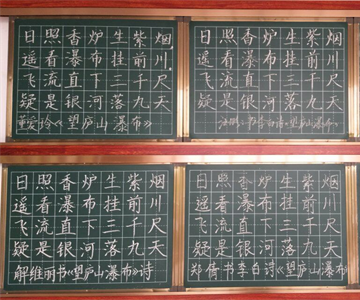 日照香炉生紫烟
遥看瀑布挂前川
飞流直下三千尺
疑是银河落九天
董爱玲《望庐山瀑布》
日照香炉生紫烟
遥看瀑布挂前川
飞流直下三千尺
疑是银河落九天
书李白诗《望庐山瀑布》
日照香炉生紫烟
遥看瀑布挂前川
飞流直下三千尺
疑是银河落九天
解维丽书《望庐山瀑布》诗
日照香炉生紫烟
遥看瀑布挂前川
飞流直下三千尺
疑是银河落九天
郑倩书李白诗《望庐山瀑布》